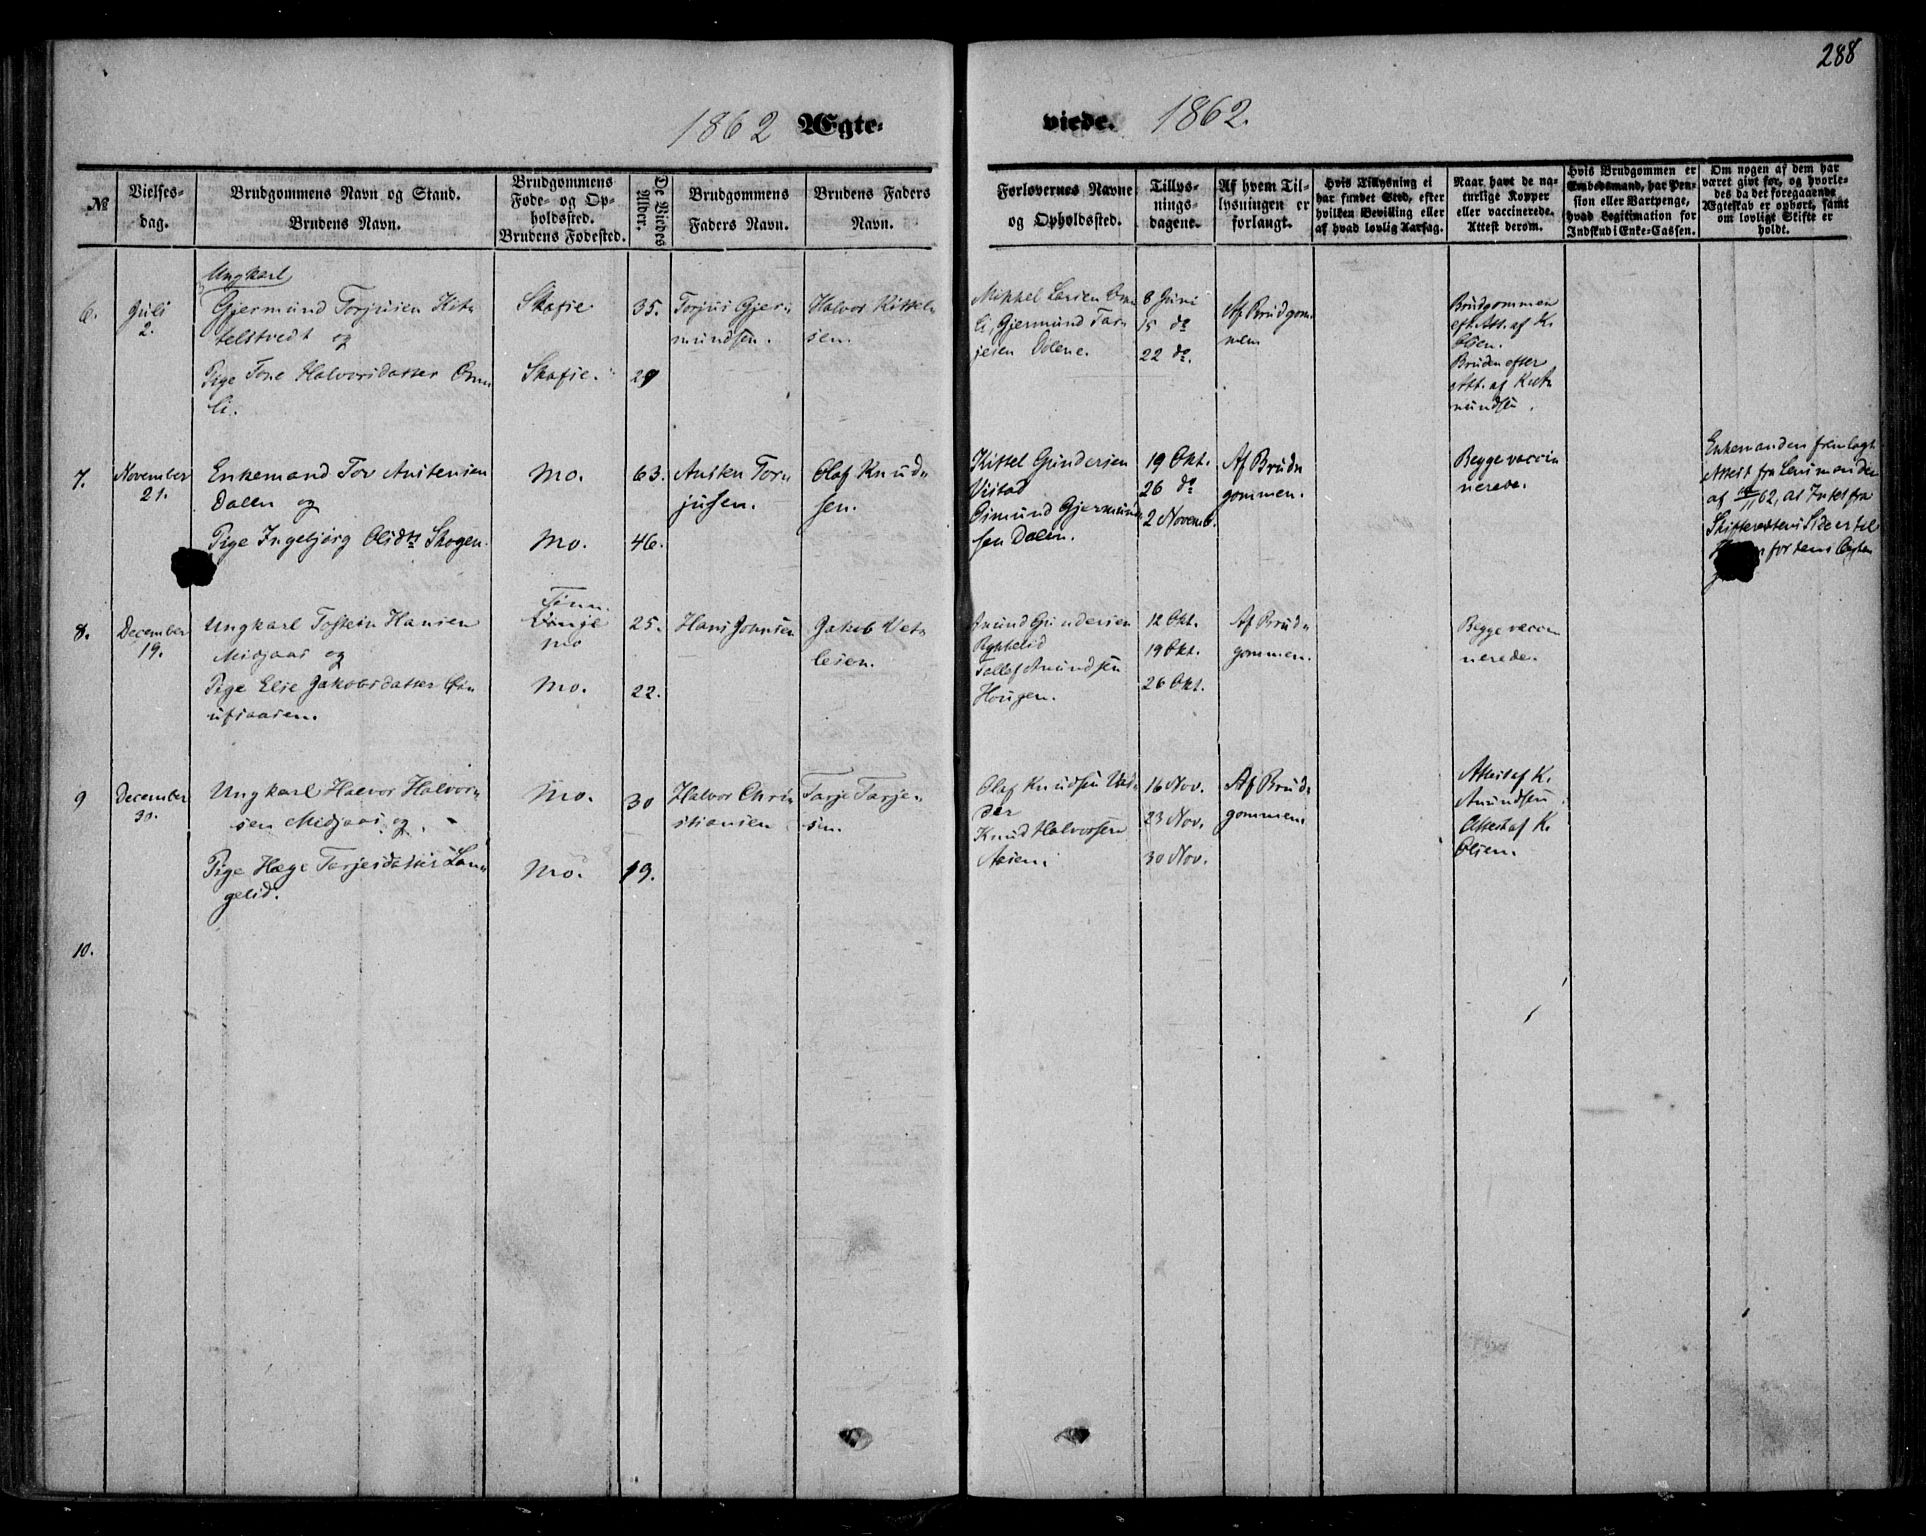 288
1862 Ægte-
viede. 1862.
№
Vielses-
dag.
Brudgommens Navn og Stand.
Brudens Navn.
Brudgommens
Føde- og Op-
holdssted.
Brudens Fødested.
De Viedes
Alder.
Brudgommens
Faders Navn.
Brudens Faders
Navn.
Forlovernes Navne
og Opholdssted.
Tillys-
nings-
dagene.
Af hvem Til-
lysningen er
forlangt.
Hvis Tillysning ei
har fundet Sted, efter
hvilken Bevilling eller
af hvad lovlig Aarsag.
Naar havt de na-
turlige Kopper
eller vaccinerede.
Attest derom.
Hvis Brudgommen er
Embedsmand, har Pen-
sion eller Vartpenge,
hvad Legitimation for
Indskud i Enke-Cassen.
Om nogen af dem har
været givt før, og hvorle-
des da det foregaaende
Ægteskab er ophørt, samt
om lovligt Skifte er
holdt.
6.
Juli
2.
Ungkarl
Gjermund Torjusen Kit-
telstvedt og
Pige Tone Halvorsdatter Omm
li.
Skafse
Skafse.
35.
29
Torjus Gjer-
mundsen.
Halvor Kittel-
sen.
Mikkel Larsen Om
li, Gjermund Tar-
jesen Dolene.
8 Juni
15 do
22 do.
Af Brudgom-
men
Brudgommen
eft. Att. af K.
Olsen.
Bruden efter
Att. af K.
mundsen.
7.
November
21.
Enkemand Tov Austensen
Dalen og
Pige Ingebjørg Olsdtr Skogen.
Mo.
Mo.
63.
46.
Austen Tor-
jusen.
Olaf Knud-
sen.
Kittel Gundersen
Vistad
Gjermund-
sen Dalen.
19 Okt.
26 do
2 Novemb.
Af Brud-
gommen.
Begge vacci-
nerede.
Enkemanden fremlagt
Attest fra Lensmanden
af 62, at Intet fra
8.
December
19.
Ungkarl Tostein Hansen
Midjaas og
Pige Elie Jakobsdatter
Mo
Mo.
25.
22.
Hans Johnsen
Jakob Vet-
lesen.
Anund Gundersen
Tallef Anundsen
Hougen.
12 Okt.
19 Okt.
26 Okt.
Af Brud-
gommen.
Begge vacci-
nerede.
9
December
30.
Ungkarl Halvor Halvor-
sen Midjaas og
Pige Hæge Tarjesdatter Lan-
gelid.
Mo.
Mo.
30
19.
Halvor Chri-
stiansen
Tarje Tarje-
sen.
Olaf Knudsen
Knud Halvorsen
Aasen.
16 Nov.
23 Nov.
30 Nov.
Af Brud-
gommen
Attest af K.
Anundsen
Attest af K.
Olsen.
10.